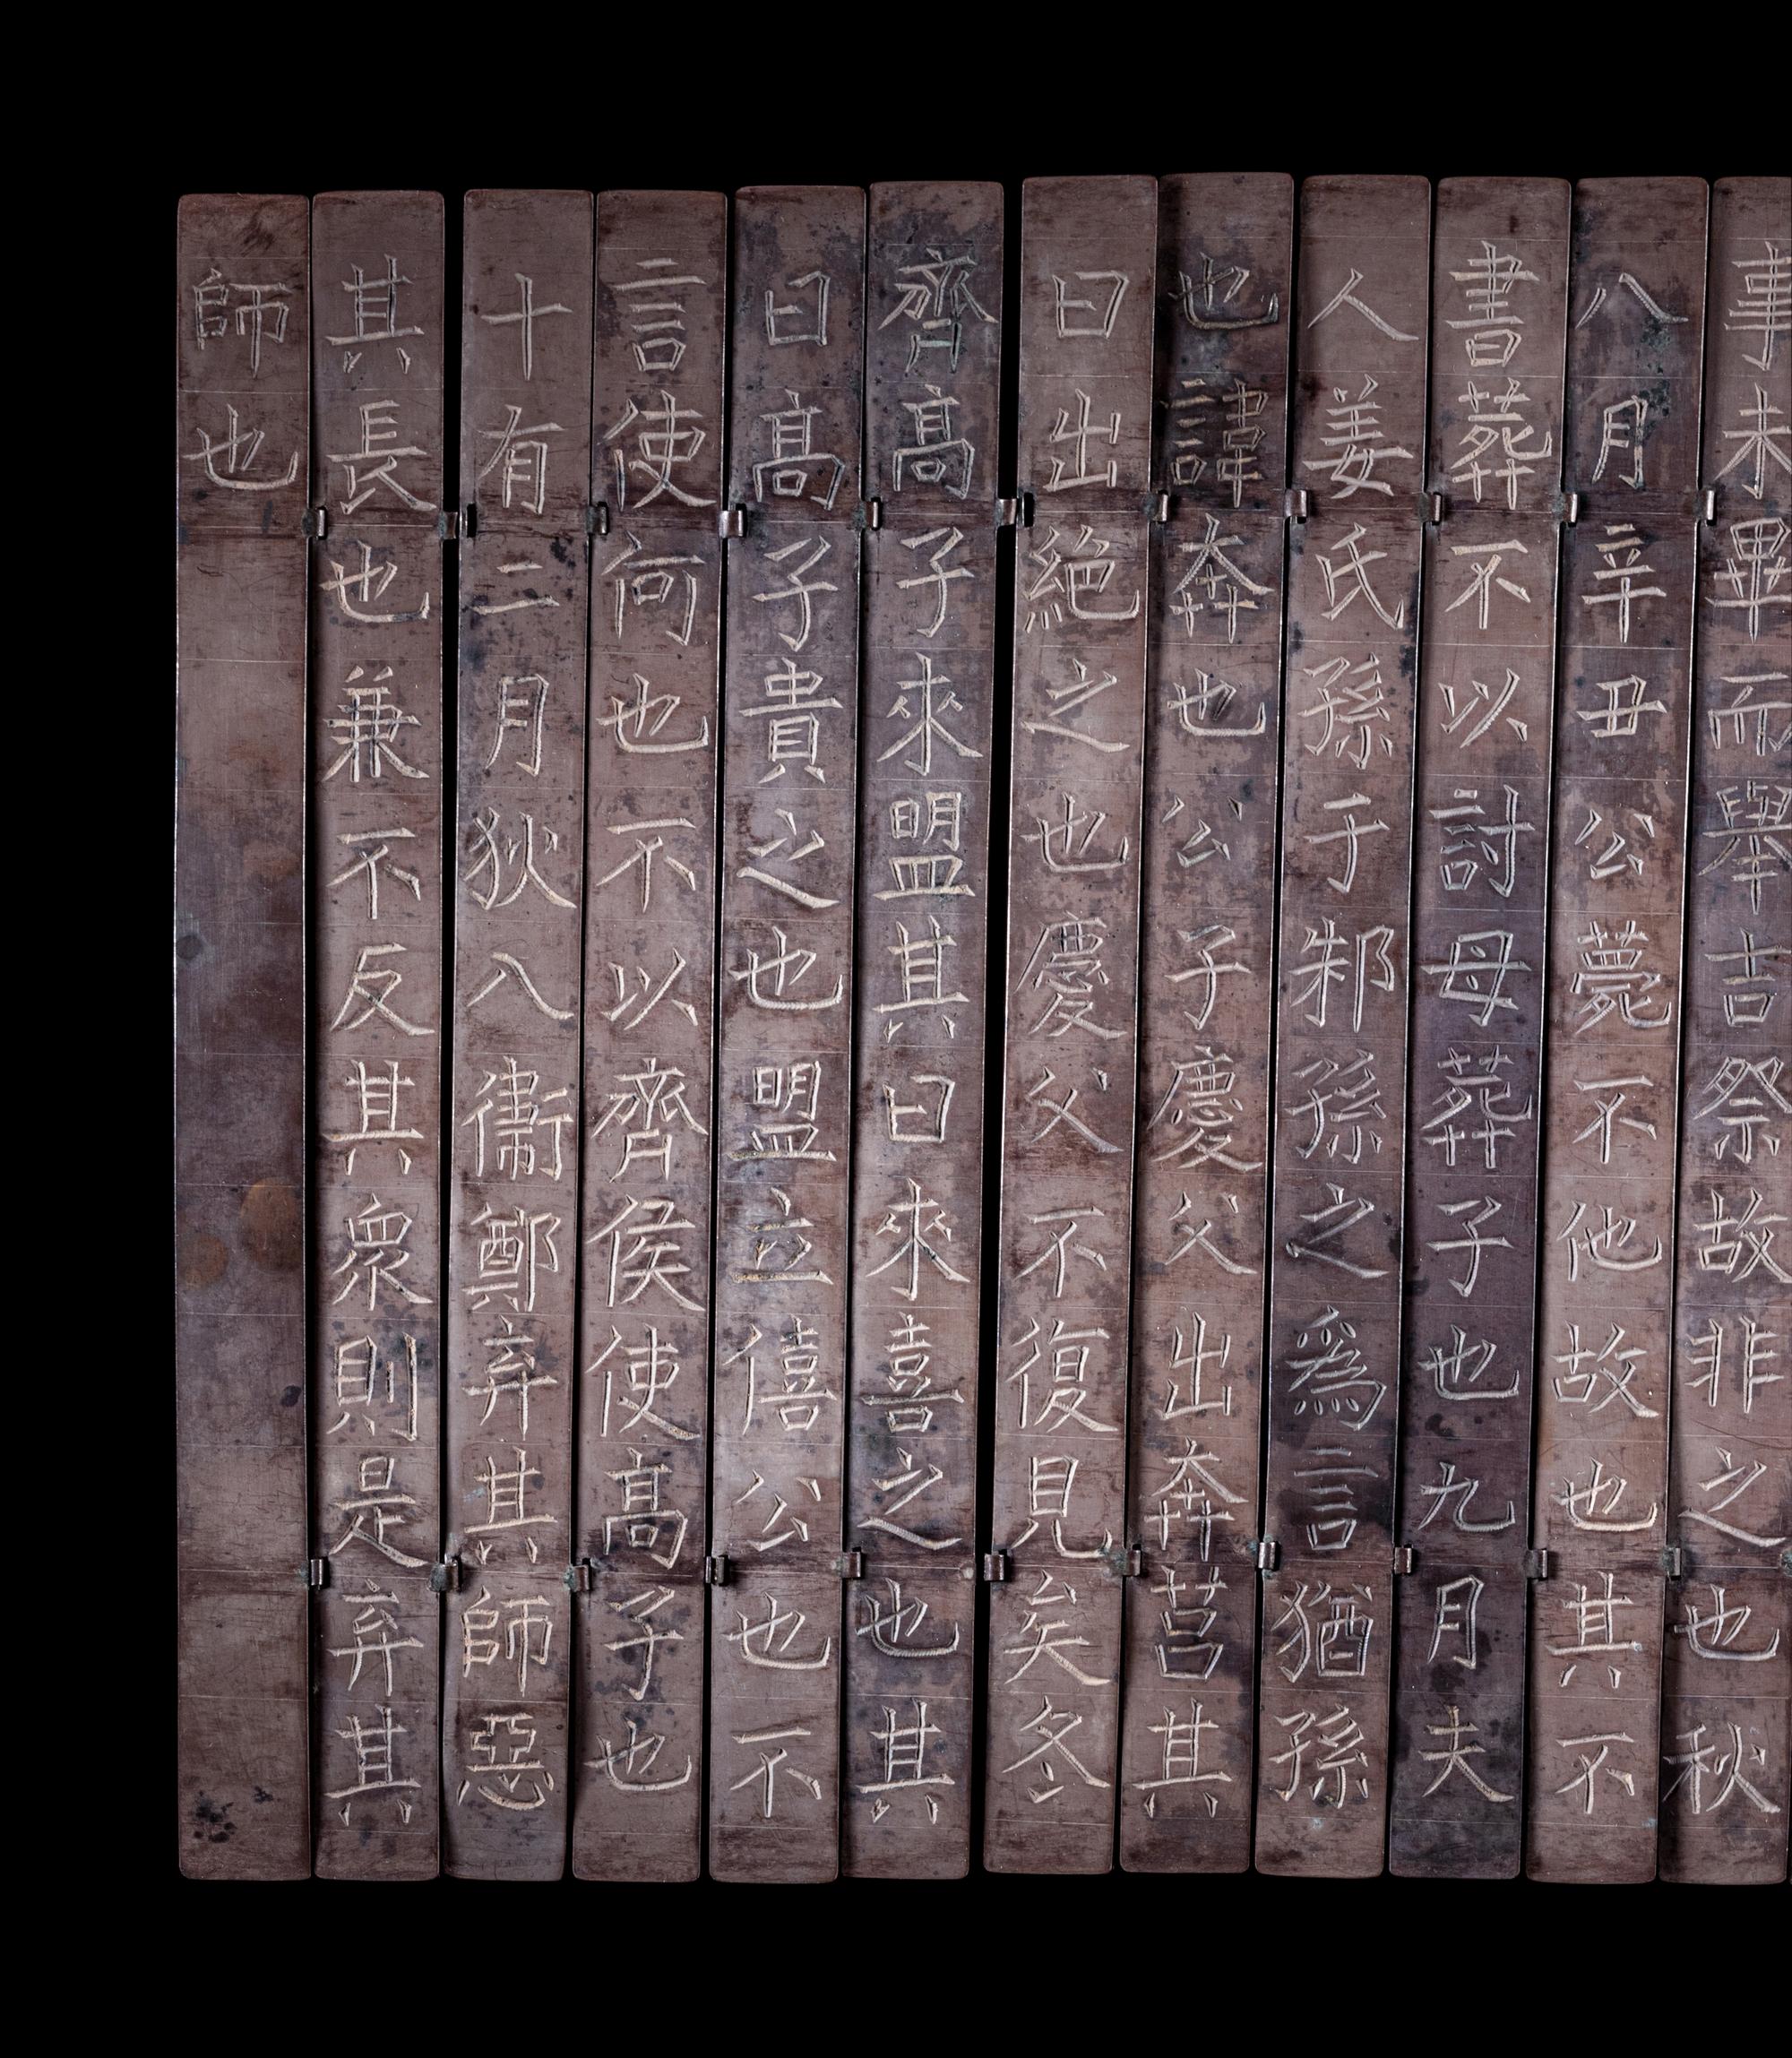 事未畢而舉吉祭故非之也秋
八月辛丑公薨不他故也其不
書葬不以討母葬子也九月夫
人姜氏孫于邾孫之爲言猶孫
也諱奔也公子慶父出奔莒其
曰出絶之也慶父不復見矣冬
齊髙子來盟其曰來喜之也其
曰髙子貴之也盟立僖公也不
言使何也不以齊侯使髙子也
十有二月狄八衞鄭弃其師惡
其長也兼不反其衆則是弃其
師也